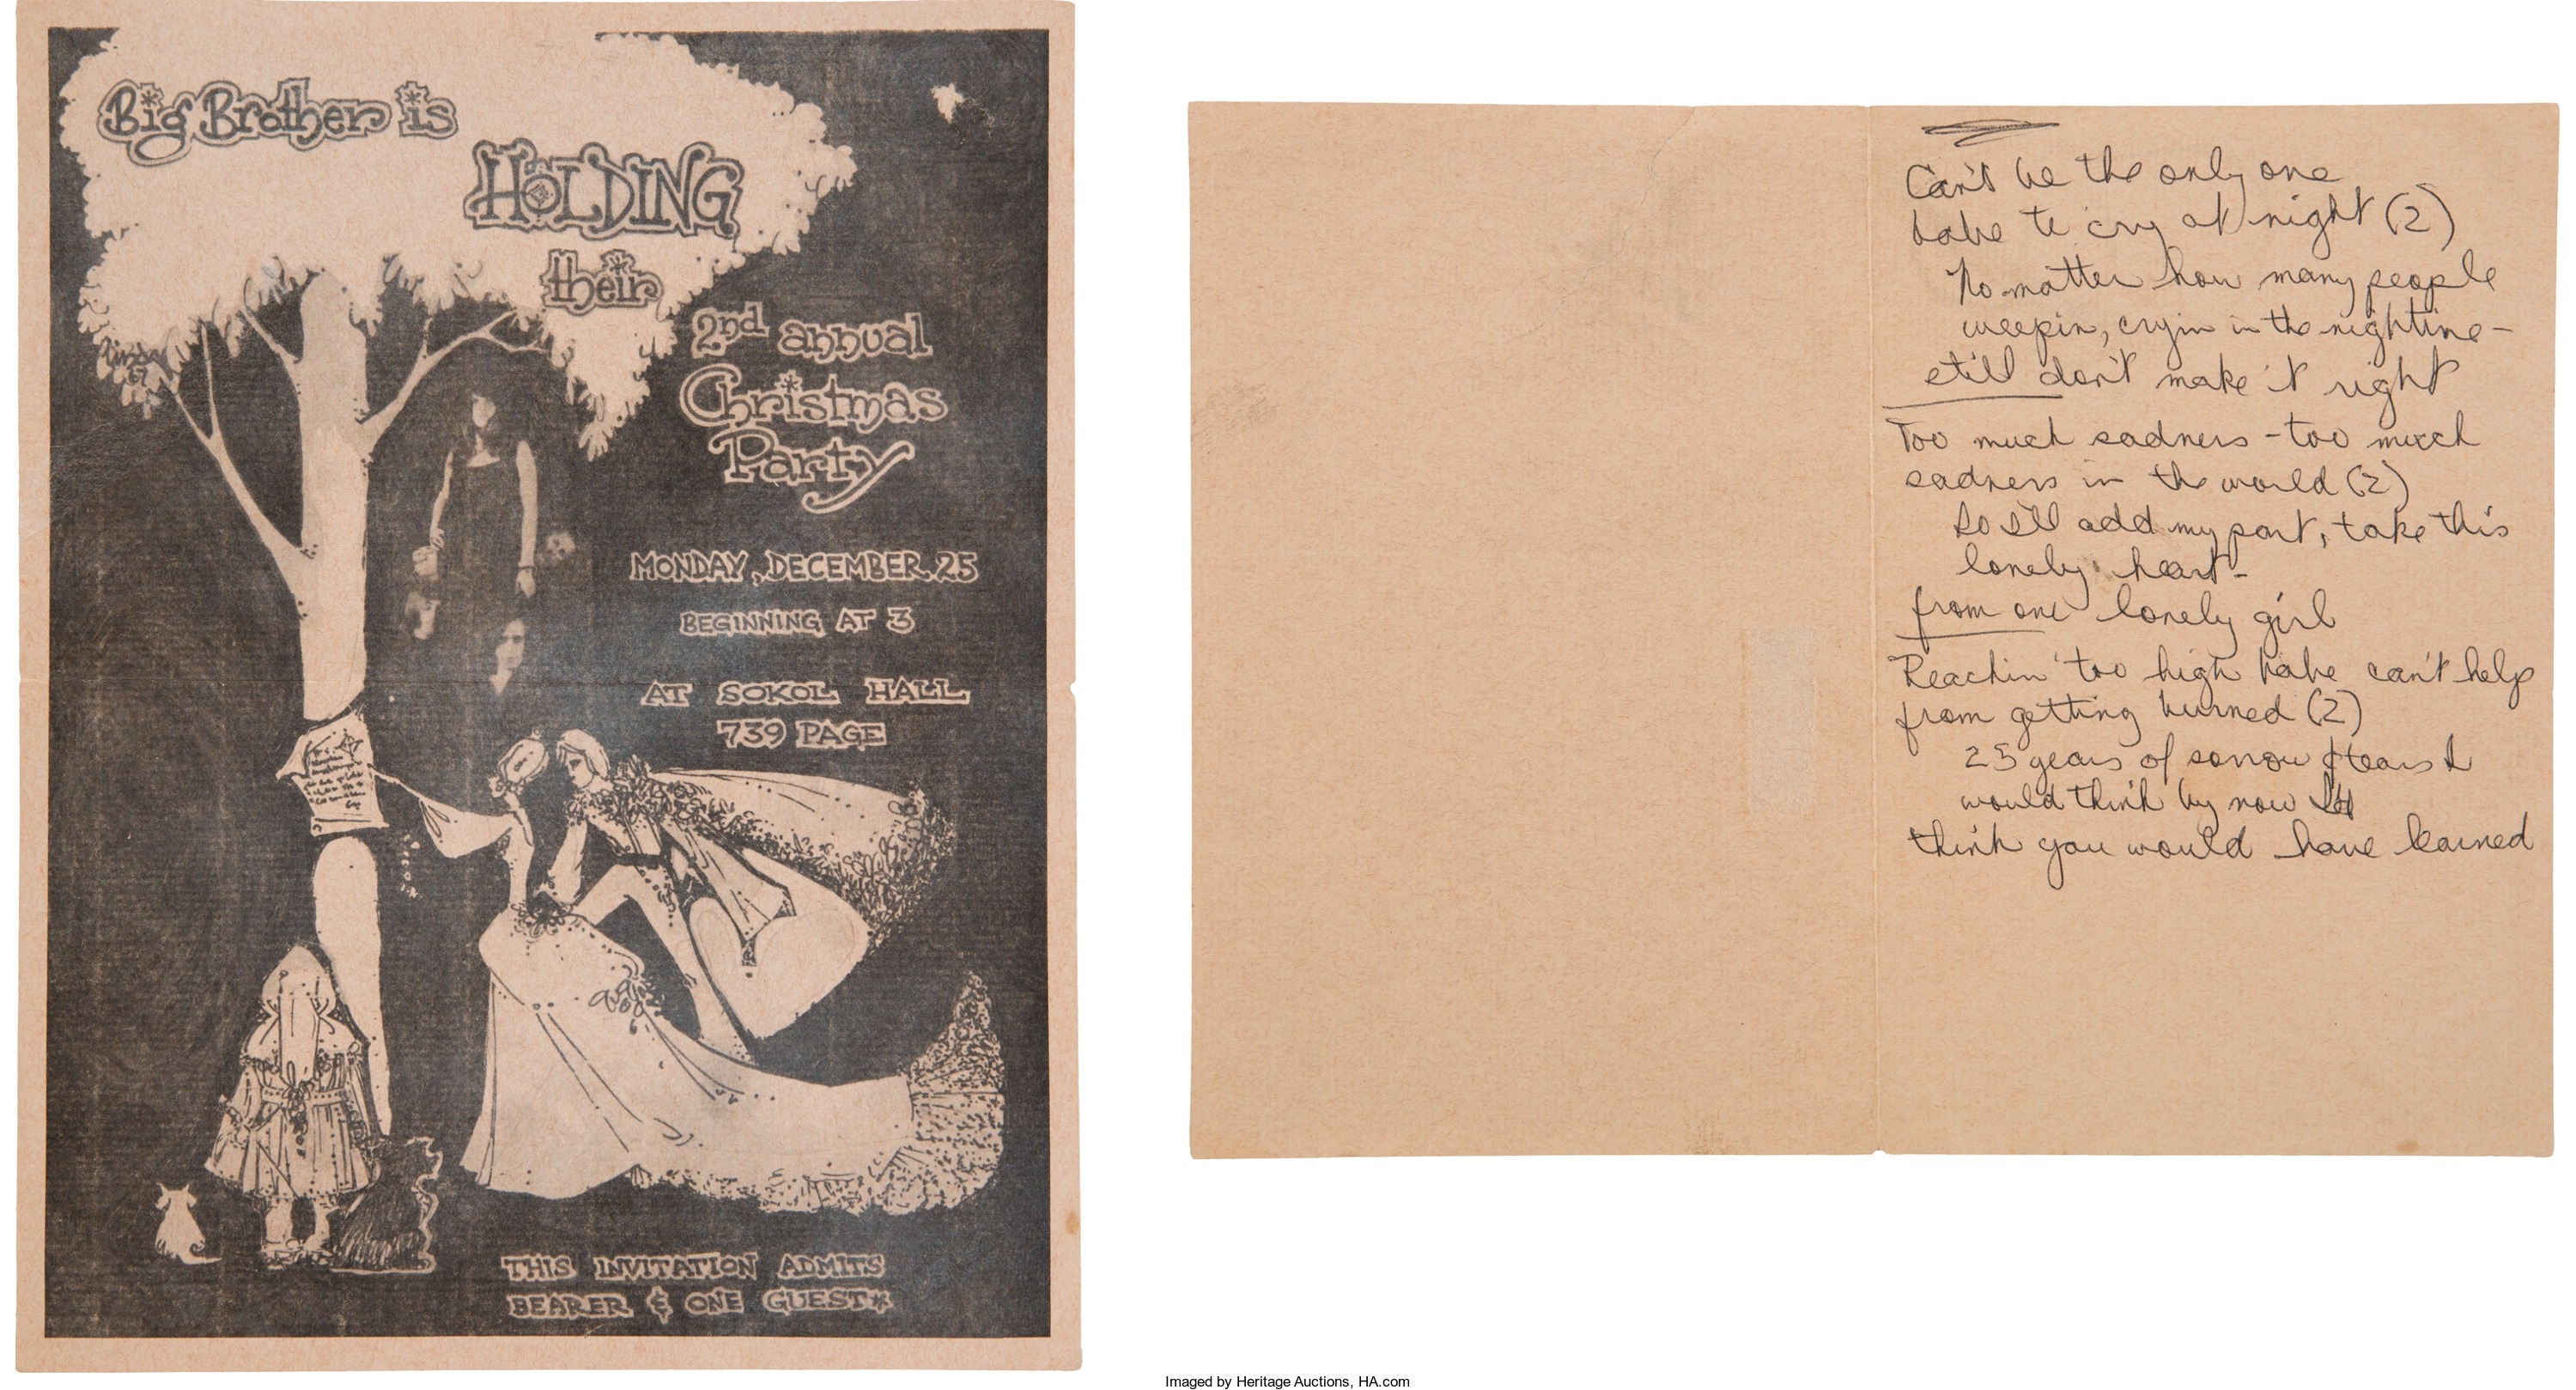 Big Brother is
HOLDING
their
2nd annual
Christmas
Party
MONDAY, DECEMBER 25
BEGINNING AT 3
AT SOKOL HALL
739 PAGE
THIS INVITATION ADMITS
BEARER & ONE GUEST*
Can't be the only one
babe to cry at night (2)
No matter how many people
weepin, cryin in the nightime -
still don't make it right
Too much sadness - too much
sadness in the world (2)
So I'll add my part, take this
lonely heart -
from one lonely girl
Reachin' too high babe can't help
from getting burned (2)
25 years of sorrow & tears I
would think by now
think you would have learned
Imaged by Heritage Auctions, HA.com